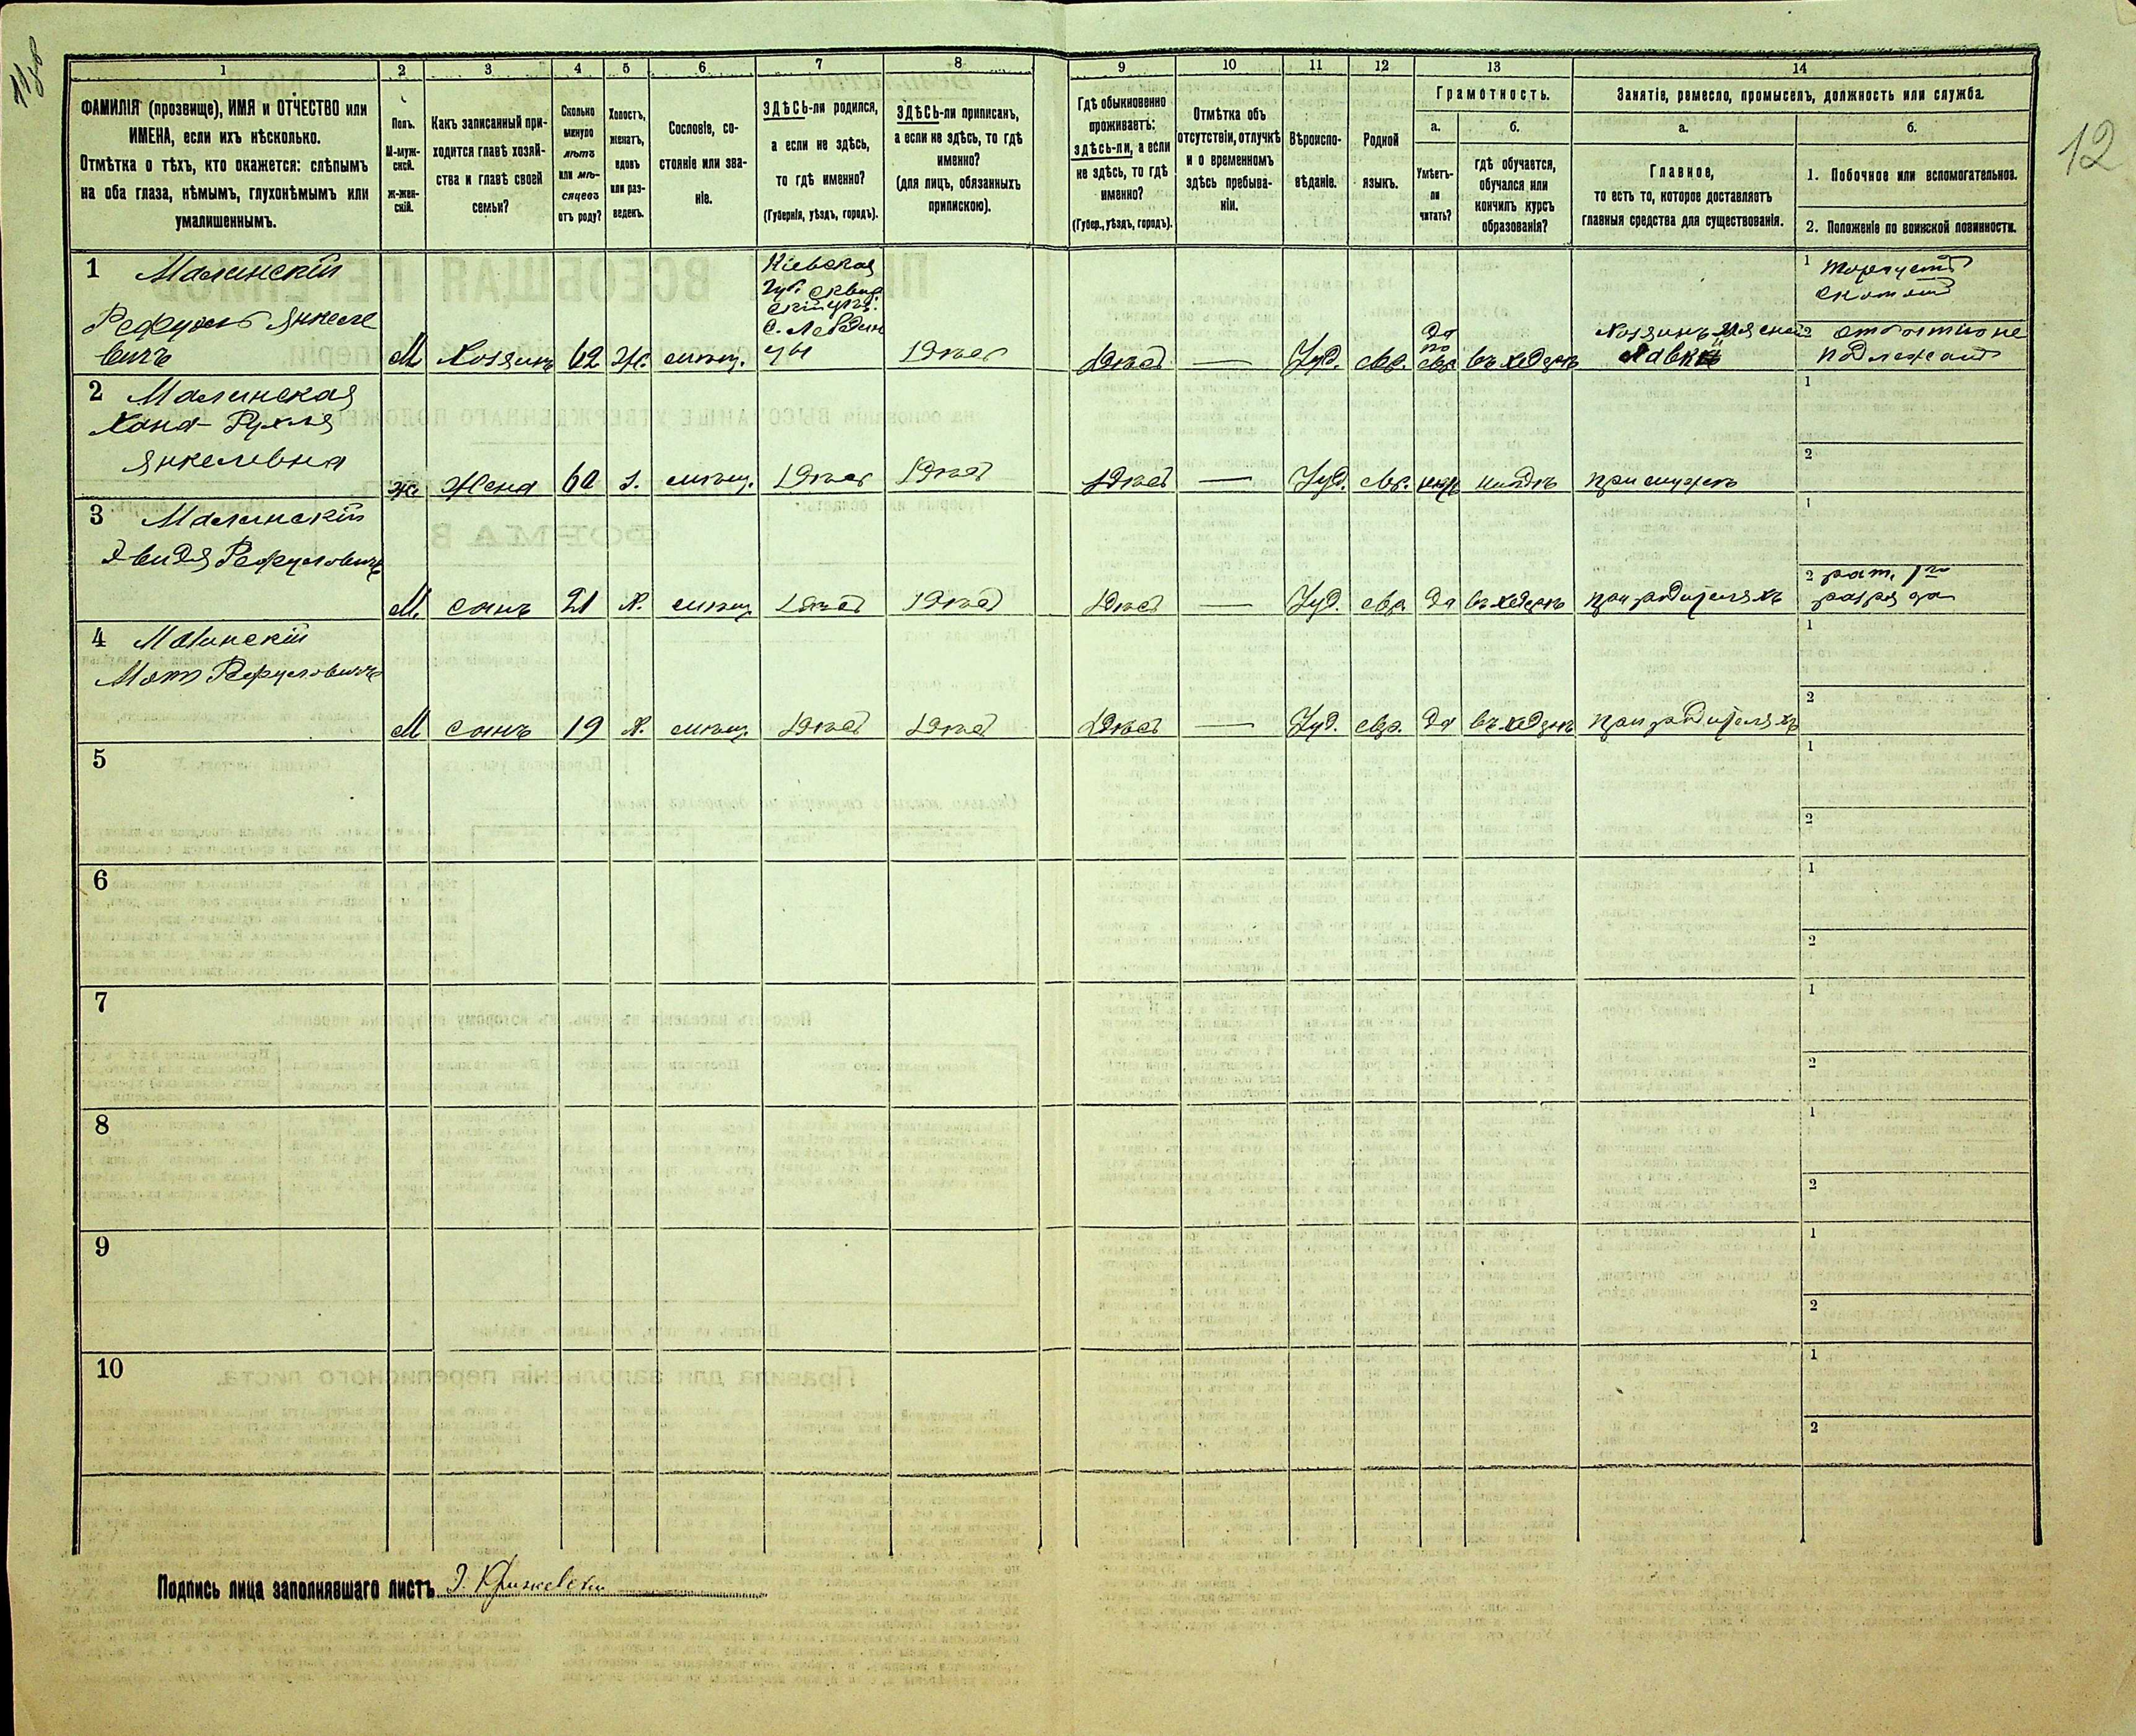 1 2 3 4 5 6 7 8 9 10 11 12 13 14
12
ФАМИЛІЯ (прозвище), ИМЯ и ОТЧЕСТВО или
ИМЕНА, если ихъ нѣсколько.
Отмѣтка о тѣхъ, кто окажется: слѣпымъ
на оба глаза, нѣмымъ, глухонѣмымъ или
умалишеннымъ.
Полъ.
М-муж-
ской.
Ж-жен-
скій.
Какъ записанный при-
ходится главѣ хозяй-
ства и главѣ своей
семьи?
Сколько
минуло
лѣтъ
или мѣ-
сяцевъ
отъ роду?
Холостъ,
женатъ,
вдовъ
или раз-
веденъ.
Сословіе, со-
стояніе или зва-
ніе.
ЗДѢСЬ-ли родился,
а если не здѣсь,
то гдѣ именно?
(Губернія, уѣздъ, городъ).
ЗДѢСЬ-ли приписанъ,
а если не здѣсь, то гдѣ
именно?
(для лицъ, обязанныхъ
припискою).
Гдѣ обыкновенно
проживаетъ:
здѣсь-ли, а если
не здѣсь, то гдѣ
именно?
(Губер., уѣздъ, городъ).
Отмѣтка объ
отсутствіи, отлучкѣ
и о временномъ
здѣсь пребыва-
ніи.
Вѣроиспо-
вѣданіе.
Родной
языкъ.
Грамотность.
а.
Умѣетъ-
ли
читать?
б.
гдѣ обучается,
обучался или
кончилъ курсъ
образованія?
Занятіе, ремесло, промыселъ, должность или служба.
а.
Главное,
то есть то, которое доставляетъ
главныя средства для существованія.
б.
1. Побочное или вспомогательное.
2. Положеніе по воинской повинности.
1 Малинскій
Рефуль Янкеле
вичъ
М Хозяинъ 62 Ж. мѣщ.
Кіевская
Губ. Сквир
скій уѣз.
с. Лебедин
цы
здѣсь здѣсь — Iуд. евр.
да
по
евр.
въ хедерѣ
Хозяинъ мясной
лавки
1 торгуетъ
скотомъ
2 отбытію не
подлежитъ
2 Малинская
Хана-Рухля
Янкелевна
ж. Жена 60 з. мѣщ. здѣсь здѣсь здѣсь — Iуд. евр. нѣтъ нигдѣ при мужѣ
1
2
3 Малинскій
Двидя Рефуловичъ
М. сынъ 21 х. мѣщ. здѣсь здѣсь здѣсь — Iуд. евр. да въ хедерѣ при родителяхъ
1
2 рат. 1го
разряда
4 Малинскій
Мотя Рефуловичъ
М сынъ 19 х. мѣщ. здѣсь здѣсь здѣсь — Iуд. евр. да въ хедерѣ при родителяхъ
1
2
5
1
2
6
1
2
7
1
2
8
1
2
9
1
2
10
1
2
Подпись лица заполнявшаго листъ